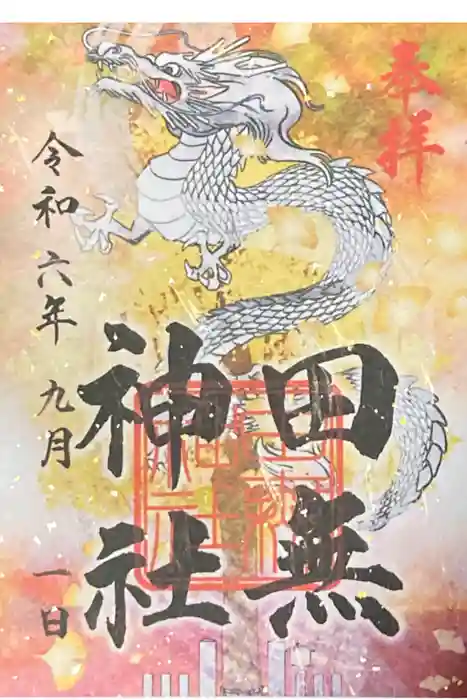 奉拝
田無
神社
令和六年九月一日